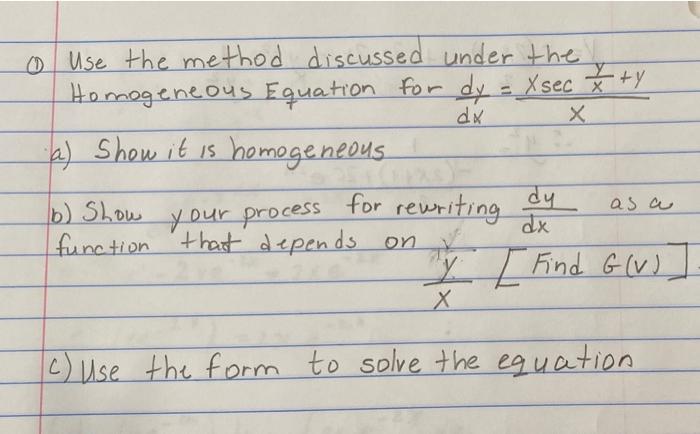 ① Use the method discussed under the
Homogeneous Equation for dy/dx = (x sec y/x + y)/x
a) Show it is homogeneous
b) Show your process for rewriting dy/dx as a
function that depends on y/x [Find G(v)].
c) Use the form to solve the equation